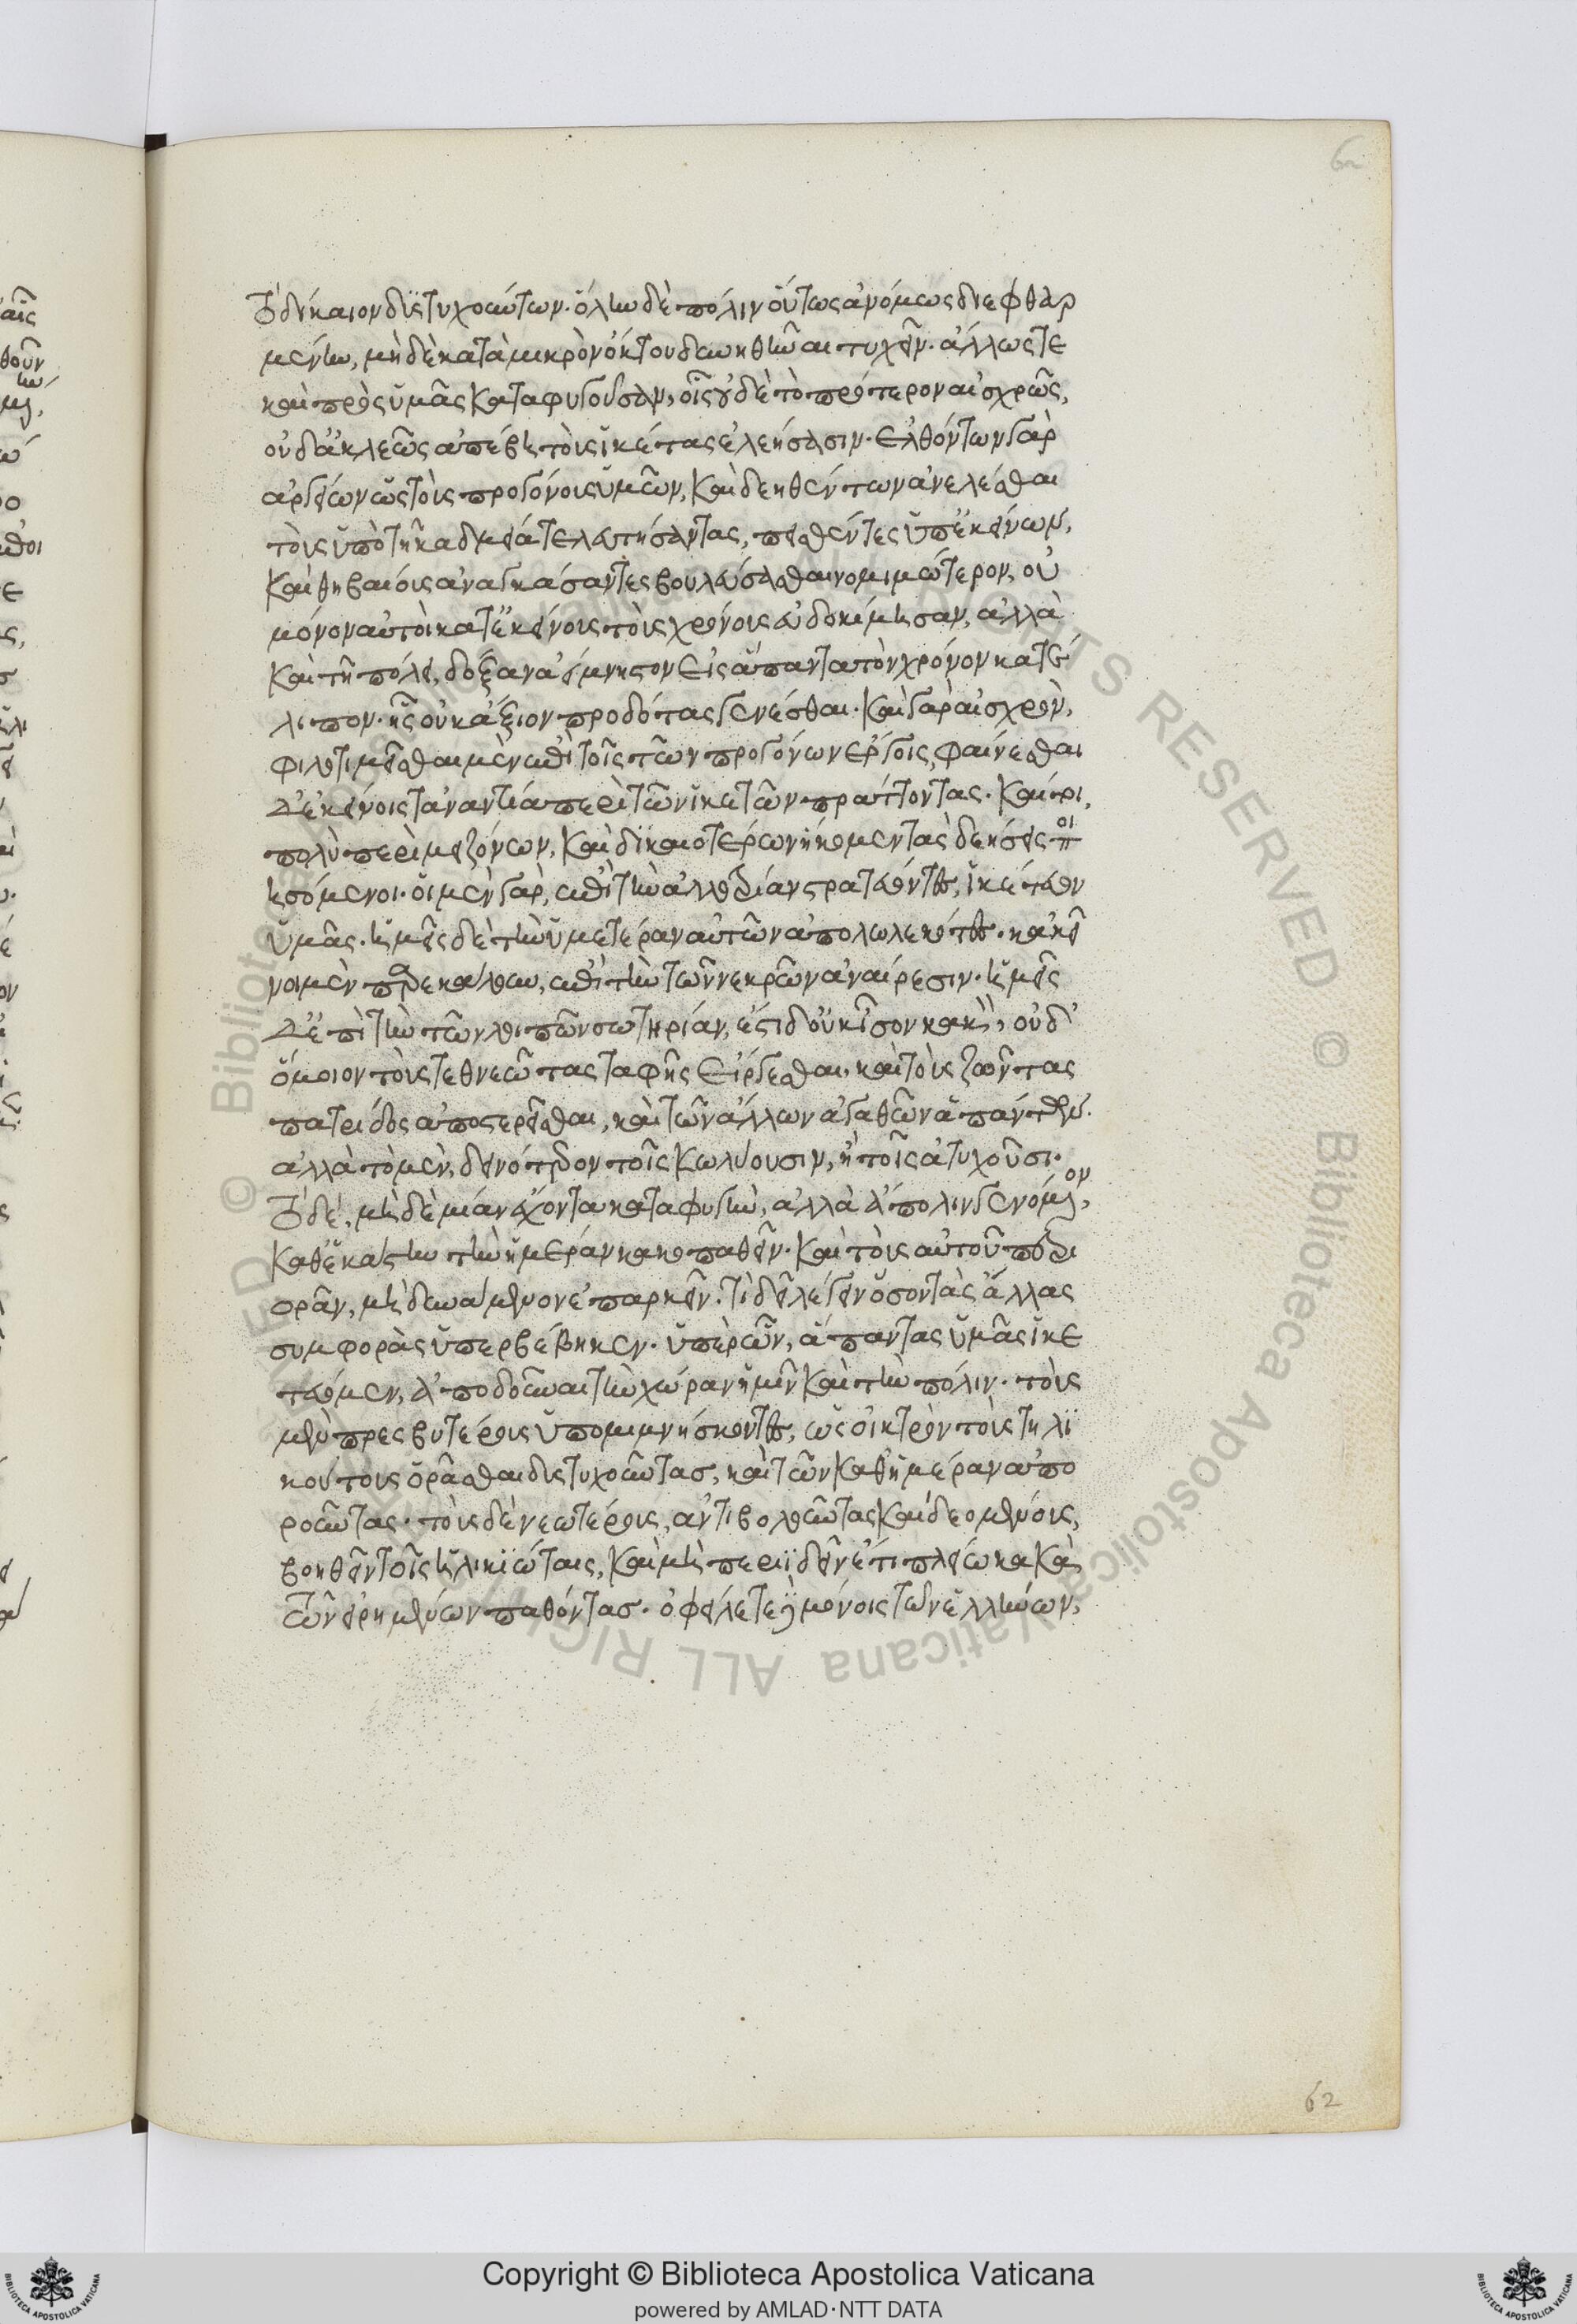 τὸ δίκαιον δυστυχούντων· ὅλην δὲ πόλιν οὕτως ἀνόμως διεφθαρ
μένην, μηδὲ κατὰ μικρὸν οἴκτου δυνηθῆναι τυχεῖν· ἄλλως τε
καὶ πρὸς ὑμᾶς καταφυγοῦσαν, οἷς οὐδὲ τὸ πρότερον αἰσχρῶς,
οὐδ' ἀκλεῶς ἀπέβη τοὺς ἱκέτας ἐλεήσασιν· ἐλθόντων γὰρ
ἀργείων ὡς τοὺς προγόνους ὑμῶν, καὶ δεηθέντων ἀνελέσθαι
τοὺς ὑπὸ τῇ καδμείᾳ τελευτήσαντας, πεισθέντες ὑπ' ἐκείνων,
καὶ θηβαίους ἀναγκάσαντες βουλεύσασθαι νομιμώτερον, οὐ
μόνον αὐτοὶ κατ' ἐκείνους τοὺς χρόνους εὐδοκίμησαν, ἀλλὰ
καὶ τῇ πόλει, δόξαν ἀείμνηστον εἰς ἅπαντα τὸν χρόνον κατέ
λιπον· ἧς οὐκ ἄξιον προδότας γενέσθαι· καὶ γὰρ αἰσχρὸν,
φιλοτιμεῖσθαι μὲν ἐπὶ τοῖς τῶν προγόνων ἔργοις, φαίνεσθαι
δ' ἐκείνοις τἀναντία περὶ τῶν ἱκετῶν πράττοντας· καίτοι,
πολὺ περὶ μειζόνων, καὶ δικαιοτέρων ἥκομεν τὰς δεήσεις ποι
ησόμενοι· οἱ μὲν γὰρ, ἐπὶ τὴν ἀλλοτρίαν στρατεύσαντες, ἱκέτευον
ὑμᾶς· ἡμεῖς δὲ τὴν ὑμετέραν αὐτῶν ἀπολωλεκότες· κἀκεῖ
νοι μὲν παρεκάλουν, ἐπὶ τὴν τῶν νεκρῶν ἀναίρεσιν· ἡμεῖς
δ' ἐπὶ τὴν τῶν λοιπῶν σωτηρίαν, ἔστι δ' οὐκ ἴσον κακὸν, οὐδ'
ὅμοιον τοὺς τεθνεῶτας ταφῆς εἴργεσθαι, καὶ τοὺς ζῶντας
πατρίδος ἀποστερεῖσθαι, καὶ τῶν ἄλλων ἀγαθῶν ἁπάντων·
ἀλλὰ τὸ μὲν, δεινότερον τοῖς κωλύουσιν, ἢ τοῖς ἀτυχοῦσι·
τὸ δὲ, μηδεμίαν ἔχοντα καταφυγὴν, ἀλλὰ ἄπολιν γενόμενον,
καθ' ἑκάστην τὴν ἡμέραν κακοπαθεῖν· καὶ τοὺς αὑτοῦ περι
ορᾶν, μὴ δυνάμενον ἐπαρκεῖν· τί δεῖ λέγειν ὅσον τὰς ἄλλας
συμφορὰς ὑπερβέβηκεν· ὑπὲρ ὧν, ἅπαντας ὑμᾶς ἱκε
τεύομεν, ἀποδοῦναι τὴν χώραν ἡμῖν καὶ τὴν πόλιν· τοὺς
μὲν πρεσβυτέρους ὑπομιμνήσκοντες, ὡς οἰκτρὸν τοὺς τηλι
κούτους ὁρᾶσθαι δυστυχοῦντας, καὶ τῶν καθ' ἡμέραν ἀπο
ροῦντας· τοὺς δὲ νεωτέρους, ἀντιβολοῦντας καὶ δεομένους,
βοηθεῖν τοῖς ἡλικιώταις, καὶ μὴ περιιδεῖν ἔτι πλείω κακὰ
τῶν εἰρημένων παθόντας· ὀφείλετε δὲ μόνοις τῶν ἑλλήνων,
62